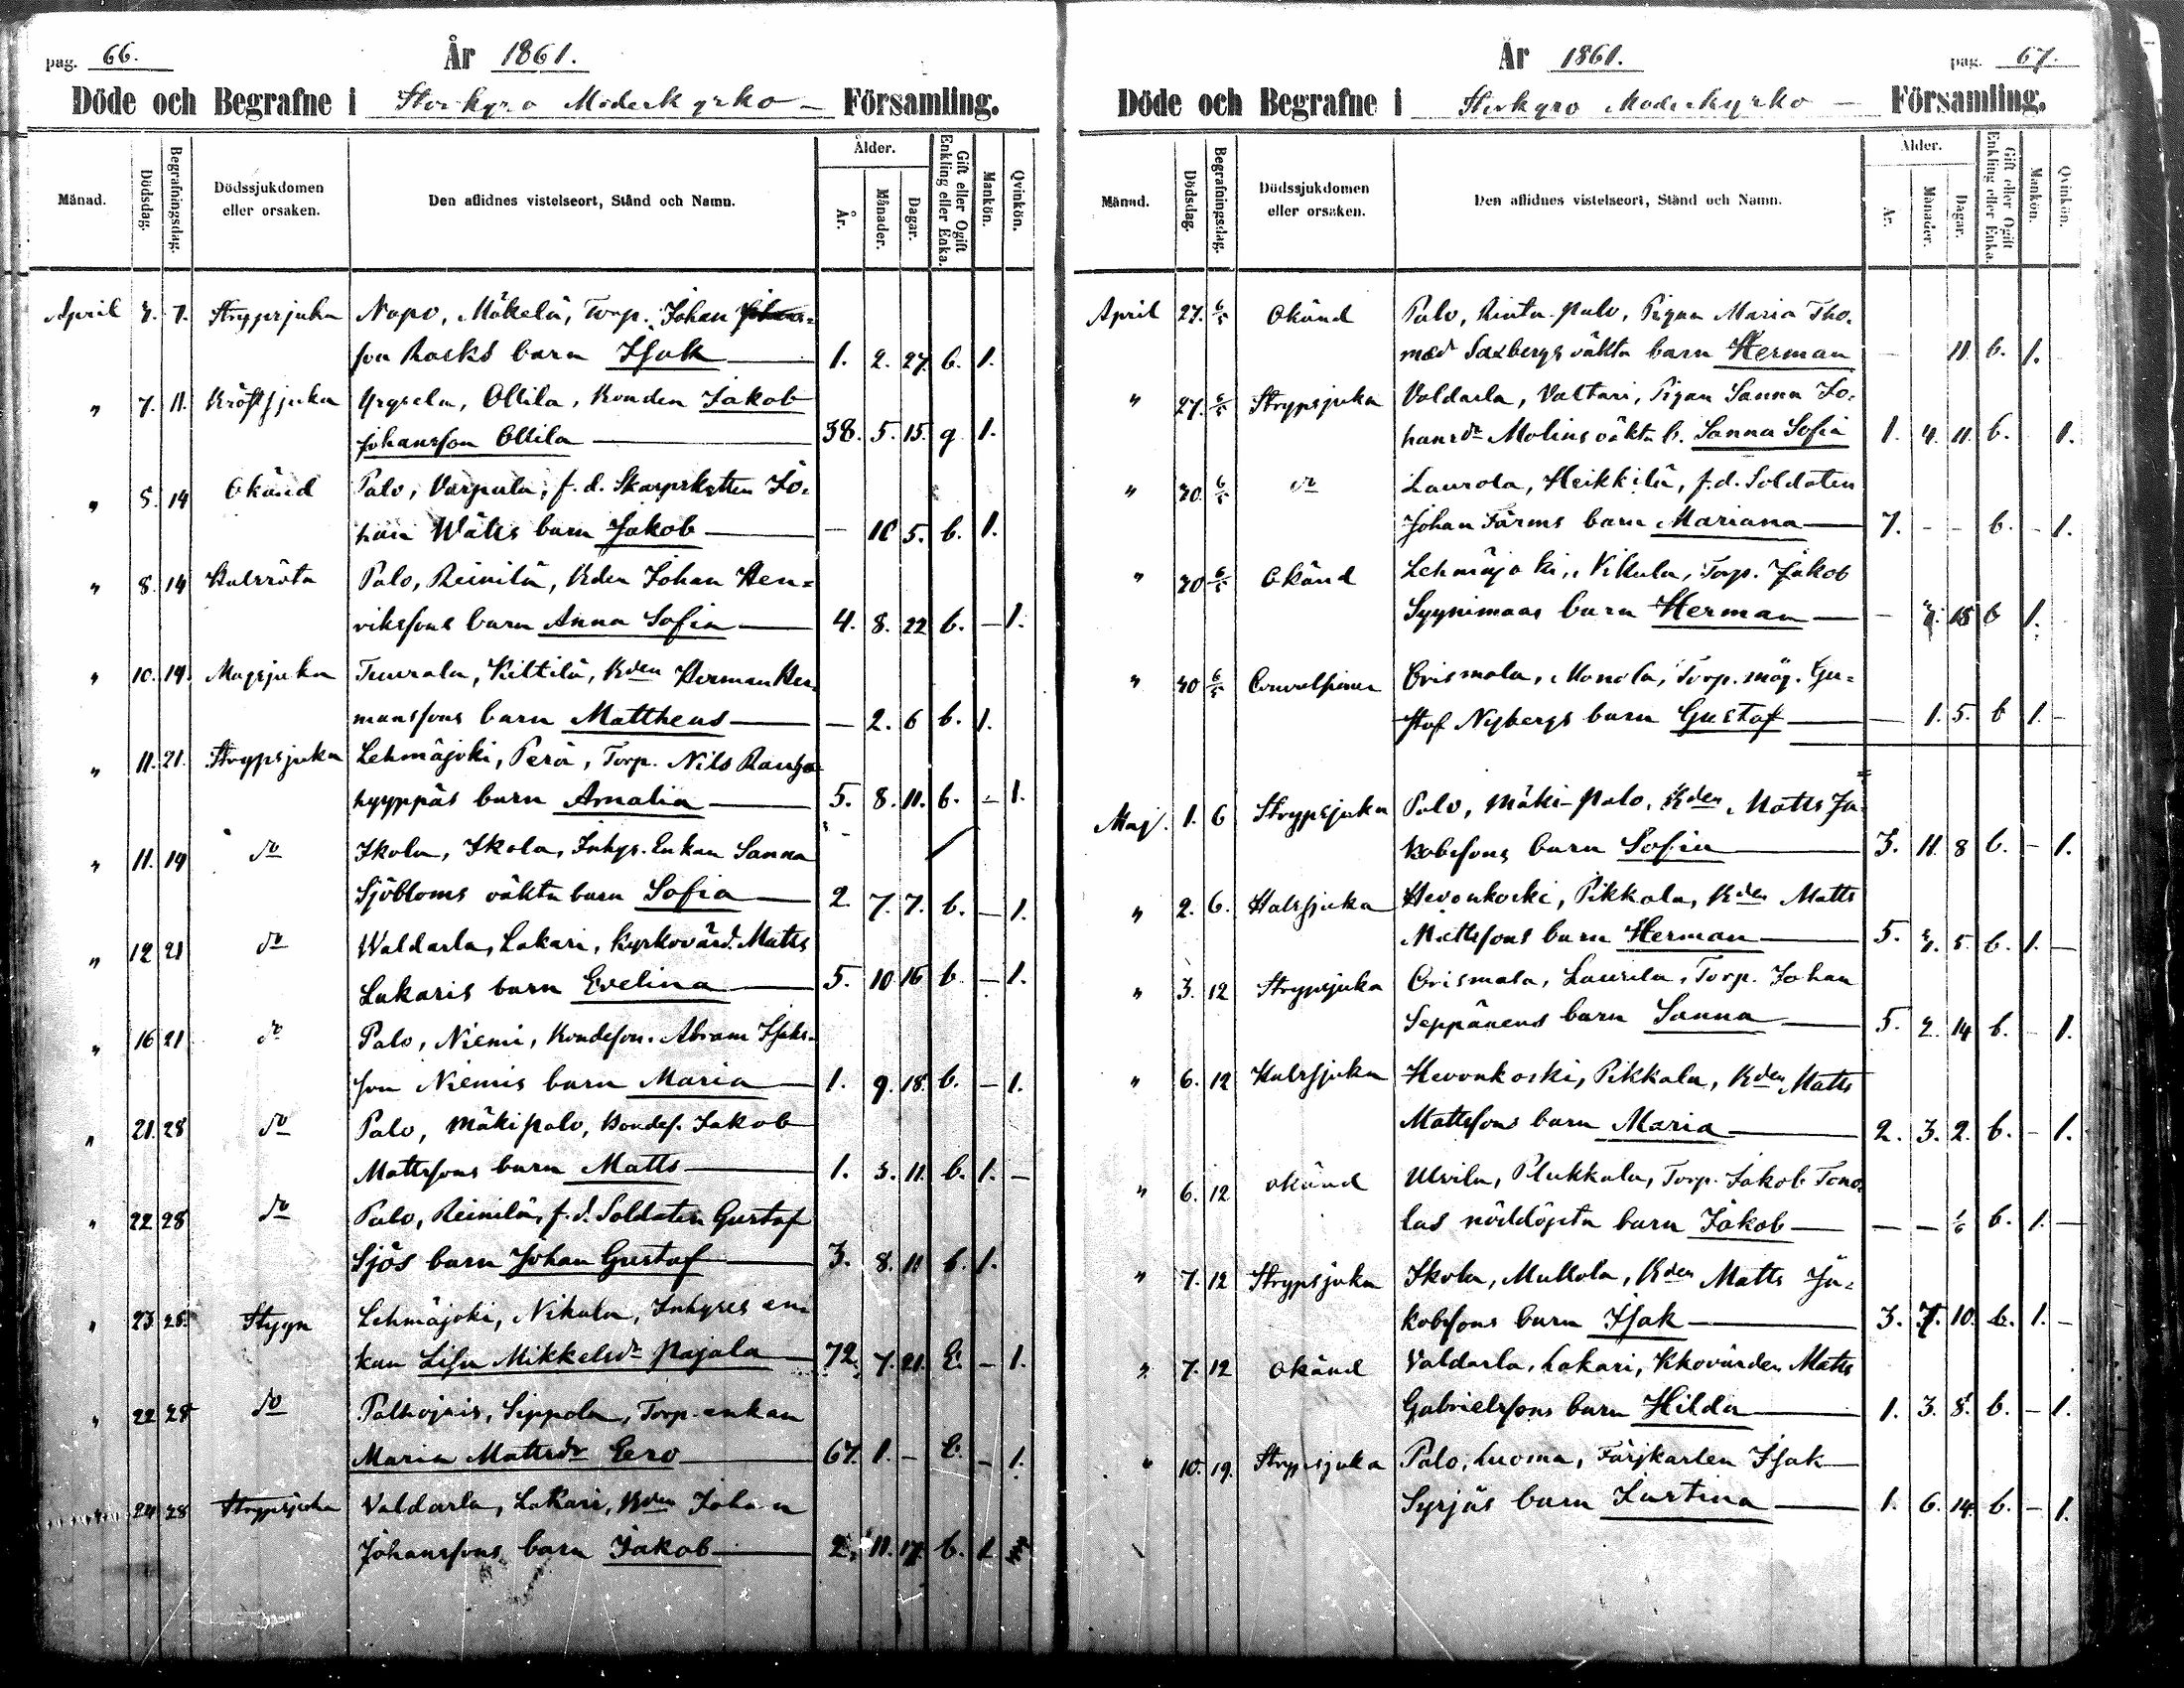 pag. 66.
År 1861.
Döde och Begrafne i Storkyro Moderkyrko Församling.
Månad. Dödsdag. Begrafningsdag. Dödssjukdomen eller orsaken. Den aflidnes vistelseort, Stånd och Namn. Ålder. År. Månader. Dagar. Gift eller Ogift Enkling eller Enka. Mankön. Qvinkön.
April 3. 7. Strypsjuka Napo, Mäkelä, Torp. Johan Johans=
son Rasks barn Isak 1. 2. 27. b. 1.
" 7. 11. Kräftsjuka Yrgselä, Ollila, Bonden Jakob
Johansson Ollila 38. 5. 15. g 1.
" 5. 14 Okänd Palo, Varpula, f.d. Skarpskytten Jo-
han Wäljs barn Jakob — 10 5. b. 1.
" 8. 14 Halsröta Palo, Reinilä, Bden Johan Hen=
rikssons barn Anna Sofia 4. 8. 22 b. — 1.
" 10. 14. Magsjuka Tuurala, Kiltilä, Bden Herman Her-
manssons barn Mattheus — 2. 6 b. 1.
" 11. 21. Strypsjuka Lehmäjoki, Perä, Torp. Nils Rauha-
hyyppäs barn Amalia 5. 8. 11. b. — 1.
" 11. 19 do Ikola, Ikola, Inhys. Enkan Sanna
Sjöbloms oäkta barn Sofia 2. 7. 7. b. — 1.
" 12 21 do Waldarla, Lakari, Kyrkovärd. Matts
Lakaris barn Evelina 5. 10 16 b — 1.
" 16 21 do Palo, Niemi, Bondeson. Abram Isaks-
son Niemis barn Maria 1. 9. 18. b. — 1.
" 21. 28 do Palo, Mäkipalo, Bondes. Jakob
Mattssons barn Matts 1. 3. 11. b. 1. —
" 22 28 do Palo, Reinilä, f.d. Soldaten Gustaf
Sjös barn Johan Gustaf 3. 8. 11 b. 1.
" 23 28. Stygn Lehmäjoki, Nikula, Inhyses en-
kan Lisa Mikkelsdr Pajala 72. 7. 21. E. — 1.
" 22 28 do Palhojais, Seppola, Torp. enkan
Maria Mattsdr Eero 67. 1. — E. — 1.
" 24 28 Strypsjuka Valdarla, Lakari, Bden Johan
Johanssons barn Jakob 2. 11. 17. b. 1
År 1861.
pag. 67.
Döde och Begrafne i Storkyro Moderkyrko — Församling.
Månad. Dödsdag. Begrafningsdag. Dödssjukdomen eller orsaken. Den aflidnes vistelseort, Stånd och Namn. Ålder. År. Månader. Dagar. Gift eller Ogift Enkling eller Enka. Mankön. Qvinkön.
April 27. 6/5 Okänd Palo, Rinta-palo, Pigan Maria Tho-
mæd Saxbergs oäkta barn Herman — 11. b. 1.
" 27. 6/5 Strypsjuka Valdarla, Valtari, Pigan Sanna Jo-
hansdr Molins oäkta b. Sanna Sofia 1. 4. 11. b. 1.
" 30. 6/5 do Laurola, Heikkilä, f.d. Soldaten
Johan Färms barn Mariana 7. - - b. - 1.
" 30 6/5 Okänd Lehmäjoki, Nikula, Torp. Jakob
Syynimaas barn Herman — 3. 15 b 1.
" 30 6/5 Convulsioner Orismala, Manola, Torp. måg. Gu=
staf Nybergs barn Gustaf — 1. 5. b 1. -
Maj. 1. 6 Strypsjuka Palo, Mäki-palo, Bden Matts Ja-
kobssons barn Sofia 3. 11. 8 b. - 1.
" 2. 6. Halssjuka Hevonkoski, Pikkala, Bden Matts
Mattssons barn Herman 5. 3. 5. b. 1. —
" 3. 12 Strypsjuka Orismala, Laurila, Torp. Johan
Seppänens barn Sanna 5. 2. 14 b. - 1.
" 6. 12 Halssjuka Hevonkoski, Pikkala, Bden Matts
Mattssons barn Maria 2. 3. 2. b. - 1.
" 6. 12 okänd Ulvila, Plukkala, Torp. Jakob Tono-
las nöddöpta barn Jakob — — 1/6 b. 1. —
" 7. 12 Strypsjuka Ikola, Mullola, Bden Matts Ja-
kobssons barn Isak 3. 7. 10. b. 1. —
" 7. 12 okänd Valdarla, Lakari, Kkovärden Matts
Gabrielssons barn Hilda 1. 3. 8. b. — 1.
" 10. 19. Strypsjuka Palo, Luoma, Färjkarlen Isak
Syrjäs barn Justina 1. 6. 14. b. — 1.